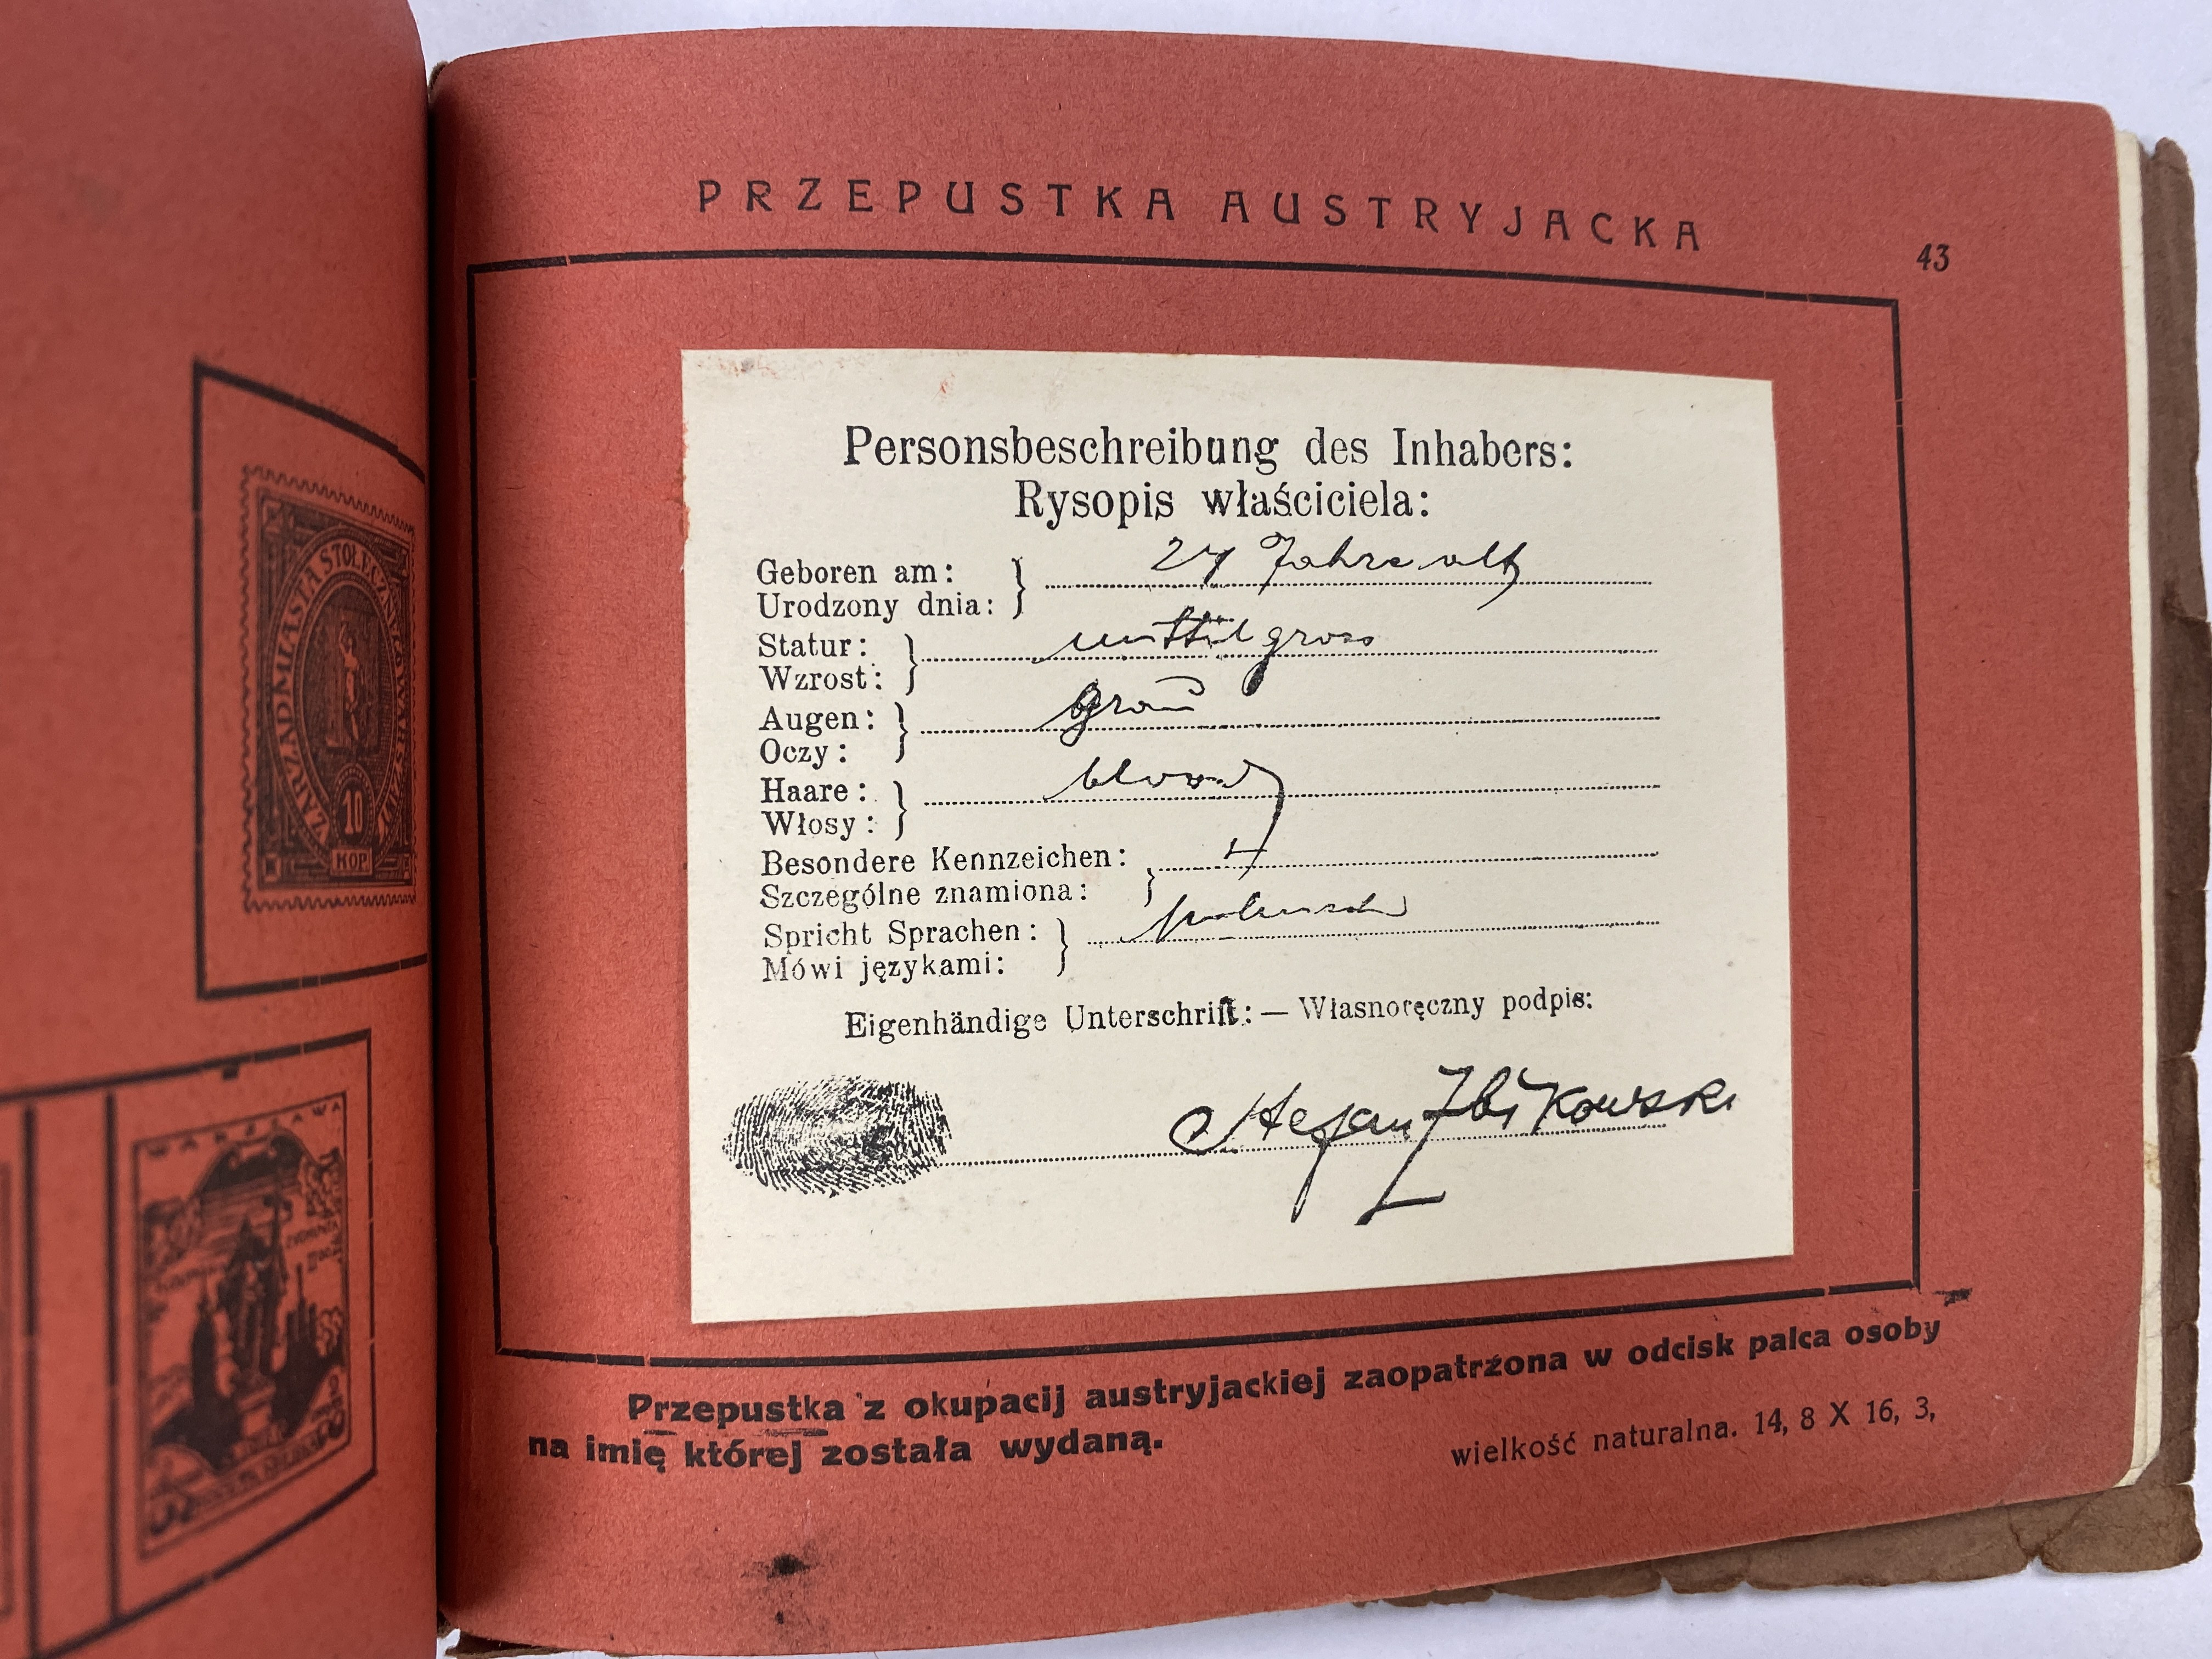 ZARZĄD MIASTA STOŁECZN
10
KOP
WARSZAWA
PRZEPUSTKA AUSTRYJACKA
43
Personsbeschreibung des Inhabers:
Rysopis właściciela:
Geboren am: 24 Jahre alt
Urodzony dnia:
Statur: mittel gross
Wzrost:
Augen: grau
Oczy:
Haare: blond
Włosy:
Besondere Kennzeichen:
Szczególne znamiona:
Spricht Sprachen: polnisch
Mówi językami:
Eigenhändige Unterschrift: — Własnoręczny podpis:
Stefan Zbikowski
Przepustka z okupacij austryjackiej zaopatrźona w odcisk palca osoby
na imię której została wydaną.
wielkość naturalna. 14, 8 X 16, 3,